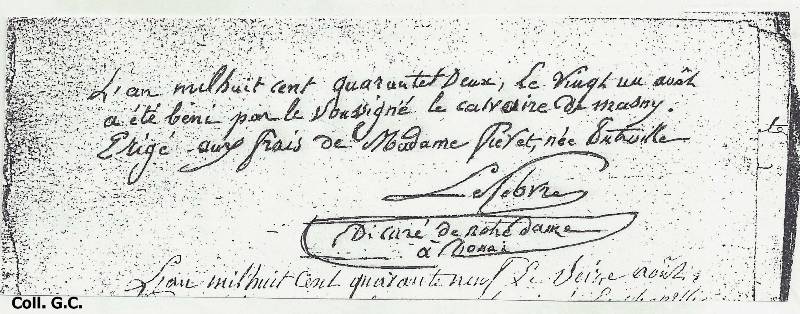 L'an mil huit cent quarante et Deux, le vingt un août
a été béni par le soussigné le calvaire de masny.
Erigé aux frais de Madame Piévet, née
Lefebvre
curé de notre dame
à Douai
L'an mil huit cent quarante neuf Le Seize août
Coll. G.C.